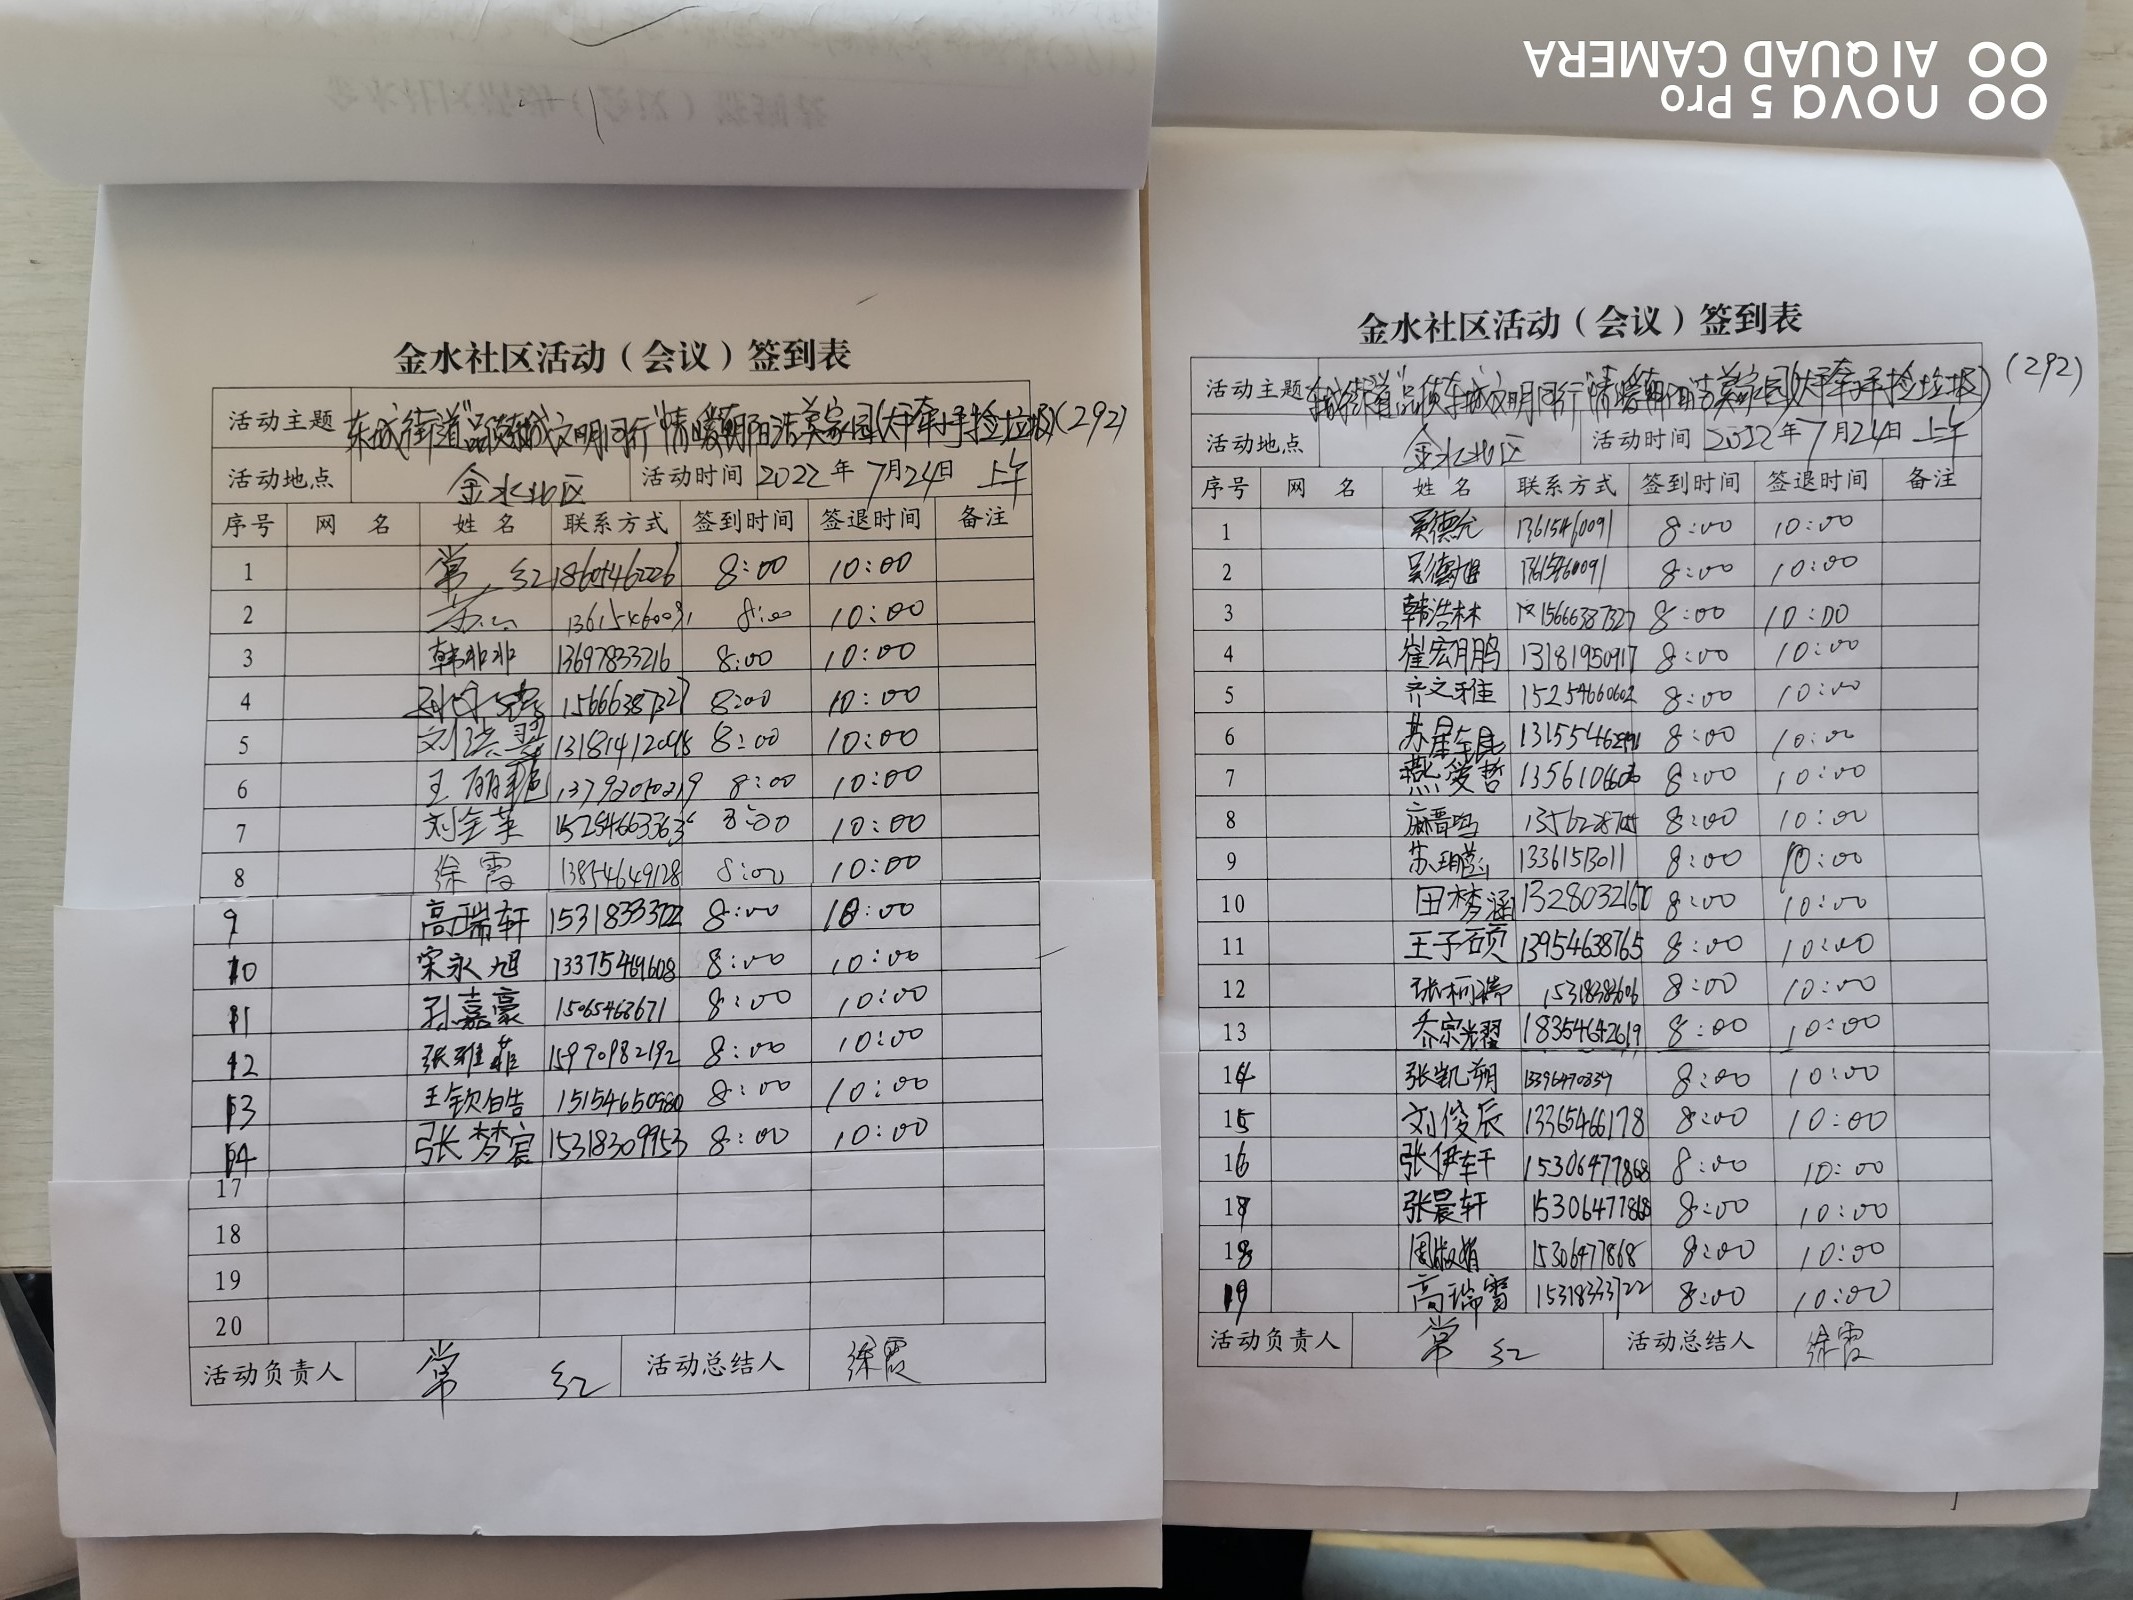 金水社区活动（会议）签到表
活动主题 东城街道"品质东城文明同行"情暖朝阳洁美家园(大手牵小手捡垃圾)(292)
活动地点 金水北区 活动时间 2022年7月24日 上午
序号 网 名 姓 名 联系方式 签到时间 签退时间 备注
1 常红 18601462226 8:00 10:00
2 8:00 10:00
3 韩非非 13697833216 8:00 10:00
4 15666387327 8:00 10:00
5 刘洪翠 8:00 10:00
6 王丽艳 13792050219 8:00 10:00
7 刘金革 8:00 10:00
8 徐霞 13854649128 8:00 10:00
9 高瑞轩 15318333722 8:00 10:00
10 宋永旭 13375469608 8:00 10:00
11 孙嘉豪 15065468671 8:00 10:00
12 张雅菲 15990982192 8:00 10:00
13 王钦皓 15154650980 8:00 10:00
14 张梦宸 15318309953 8:00 10:00
17
18
19
20
活动负责人 常红 活动总结人 徐霞
金水社区活动（会议）签到表
活动主题 东城街道"品质东城文明同行"情暖朝阳洁美家园(大手牵小手捡垃圾) (292)
活动地点 金水北区 活动时间 2022年7月24日 上午
序号 网 名 姓 名 联系方式 签到时间 签退时间 备注
1 吴德允 13615460091 8:00 10:00
2 吴德旭 8:00 10:00
3 韩浩林 15666387327 8:00 10:00
4 崔宏鹏 13181950917 8:00 10:00
5 齐之雅 15254660602 8:00 10:00
6 8:00 10:00
7 燕爱哲 8:00 10:00
8 8:00 10:00
9 13361513011 8:00 10:00
10 田梦涵 8:00 10:00
11 王子硕 13954638765 8:00 10:00
12 8:00 10:00
13 乔宗耀 18354642619 8:00 10:00
14 张凯朔 8:00 10:00
15 刘俊辰 13365466178 8:00 10:00
16 张伊轩 15306477868 8:00 10:00
17 张晨轩 15306477868 8:00 10:00
18 周淑娟 15306477868 8:00 10:00
19 高瑞雪 15318333722 8:00 10:00
活动负责人 常红 活动总结人 徐霞
nova 5 Pro
AI QUAD CAMERA